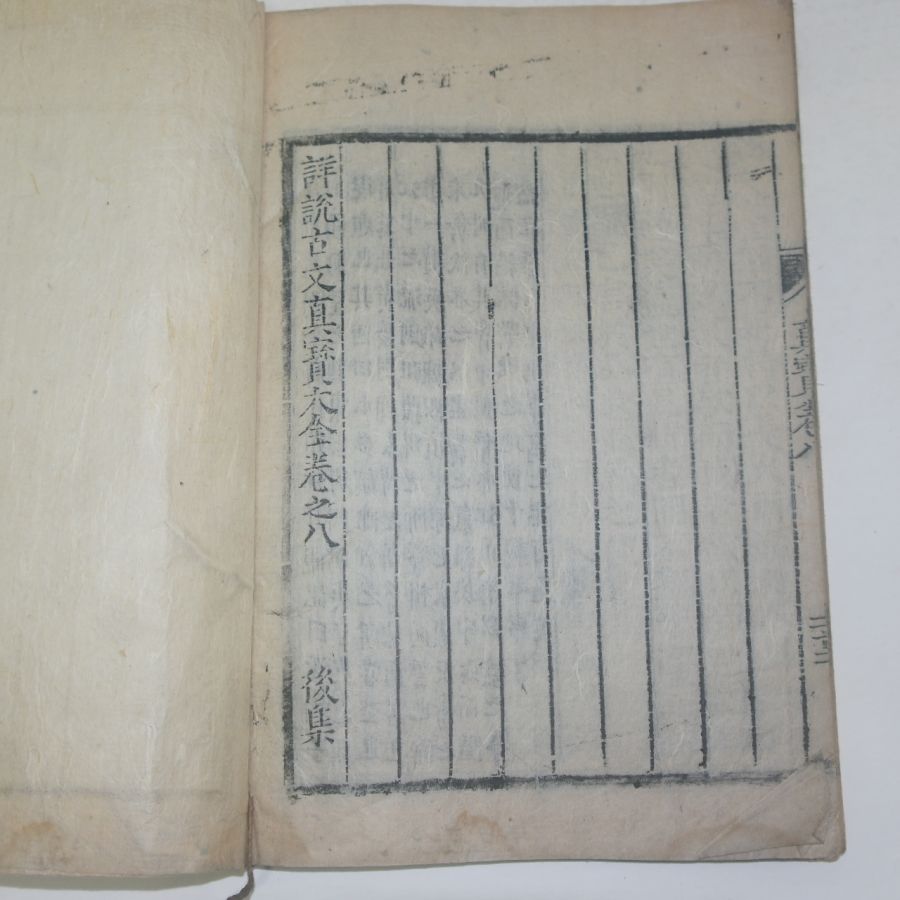 眞寶全八
二十三
詳說古文真寶大全卷之八 後集